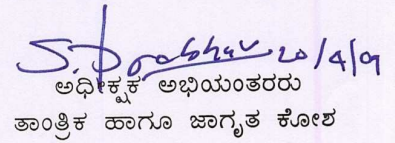 S. Prabhu 20/4/09
ಅಧೀಕ್ಷಕ ಅಭಿಯಂತರರು
ತಾಂತ್ರಿಕ ಹಾಗೂ ಜಾಗೃತ ಕೋಶ